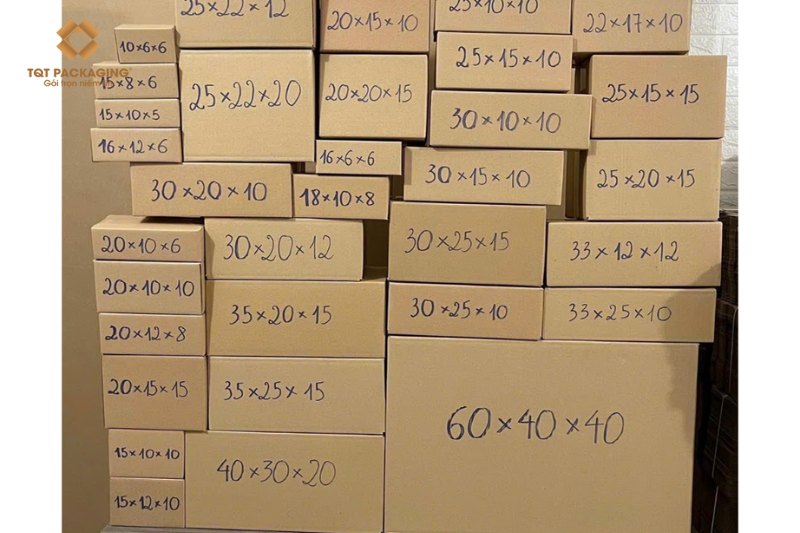 25×22×12
20×15×10
25×10×10
22×17×10
10×6×6
TQT PACKAGING
Gói trọn niềm tin
15×8×6
25×22×20
20×20×15
25×15×10
25×15×15
15×10×5
30×10×10
16×12×6
16×6×6
30×15×10
25×20×15
30×20×10
18×10×8
20×10×6
30×20×12
30×25×15
33×12×12
20×10×10
35×20×15
30×25×10
33×25×10
20×12×8
20×15×15
35×25×15
60×40×40
15×10×10
40×30×20
15×12×10